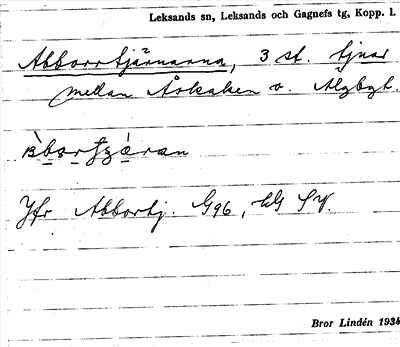 Leksands sn, Leksands och Gagnefs tg, Kopp. l.
Abborrtjärnarna, 3 st. tjnar
mellan Åskaken o. Älgbgt.
Jfr Abbortj. G96,
Bror Lindén 1934